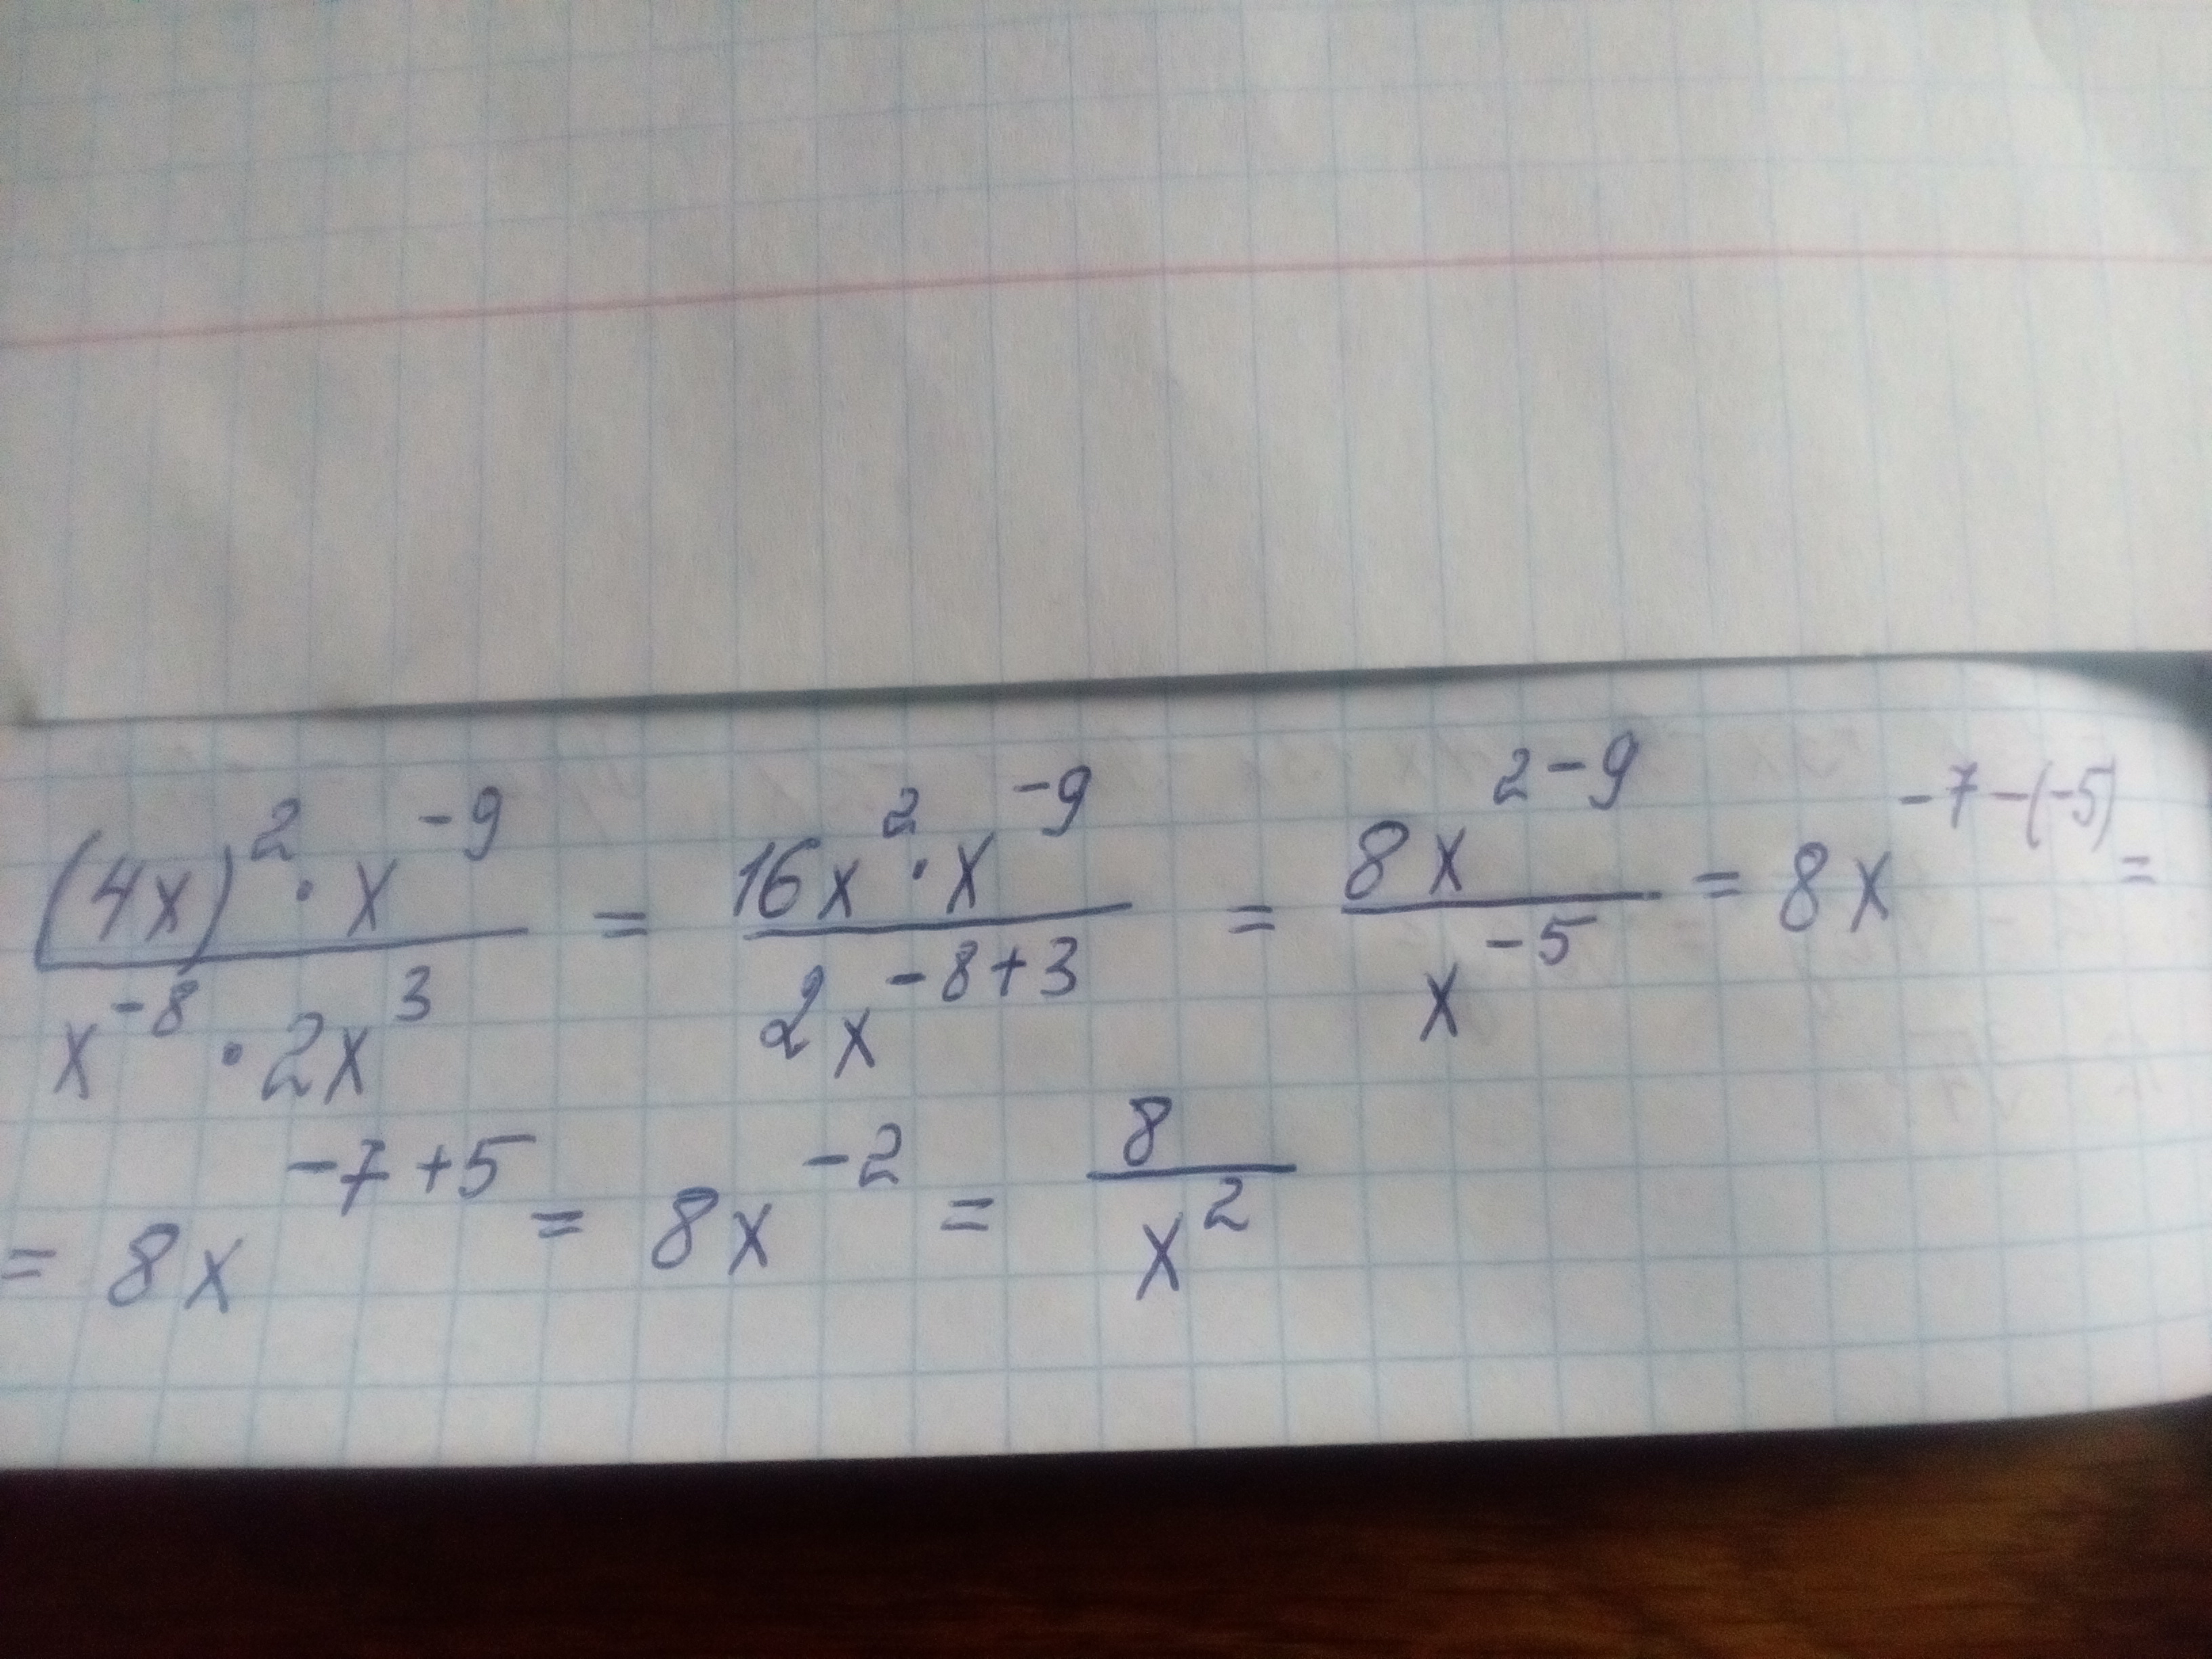 \frac{(4x)^2 \cdot x^{-9}}{x^{-8} \cdot 2x^3} = \frac{16x^2 \cdot x^{-9}}{2x^{-8+3}} = \frac{8x^{2-9}}{x^{-5}} = 8x^{-7-(-5)} =
= 8x^{-7+5} = 8x^{-2} = \frac{8}{x^2}